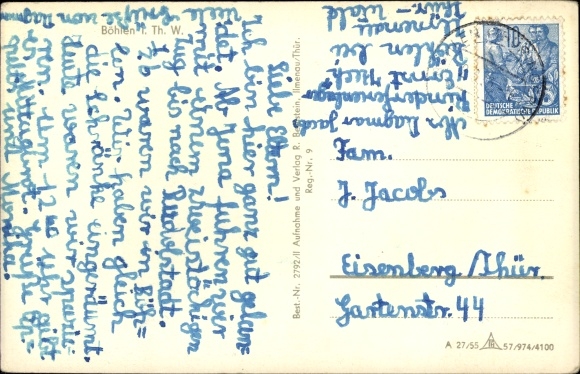 Böhlen i. Th. W.
Liebe Eltern!
Ich bin hier ganz gut gelan-
det. Ab Jena fuhren wir
mit einem zweistöckigen
Zug bis nach Rudolstadt.
waren wir in Böh=
len. Wir haben gleich
die Schränke eingeräumt.
Heute waren wir spazie=
ren. Um 12 Uhr gibt
Mittagbrot. Grüße
Opa und Monika.
Viele
Grüße von Dagmar
Best.-Nr. 2792/II Aufnahme und Verlag R. Bernstein, Ilmenau/Thür.
Reg.-Nr. 9
Abs. Dagmar Jacobs
Kinderferienlager
"Ernst
Böhlen bei
Ilmenau
Thür – Wald
10
DEUTSCHE
DEMOKRATISCHE REPUBLIK
Fam.
J. Jacobs
Eisenberg/Thür.
Gartenstr. 44
A 27/55 57/974/4100